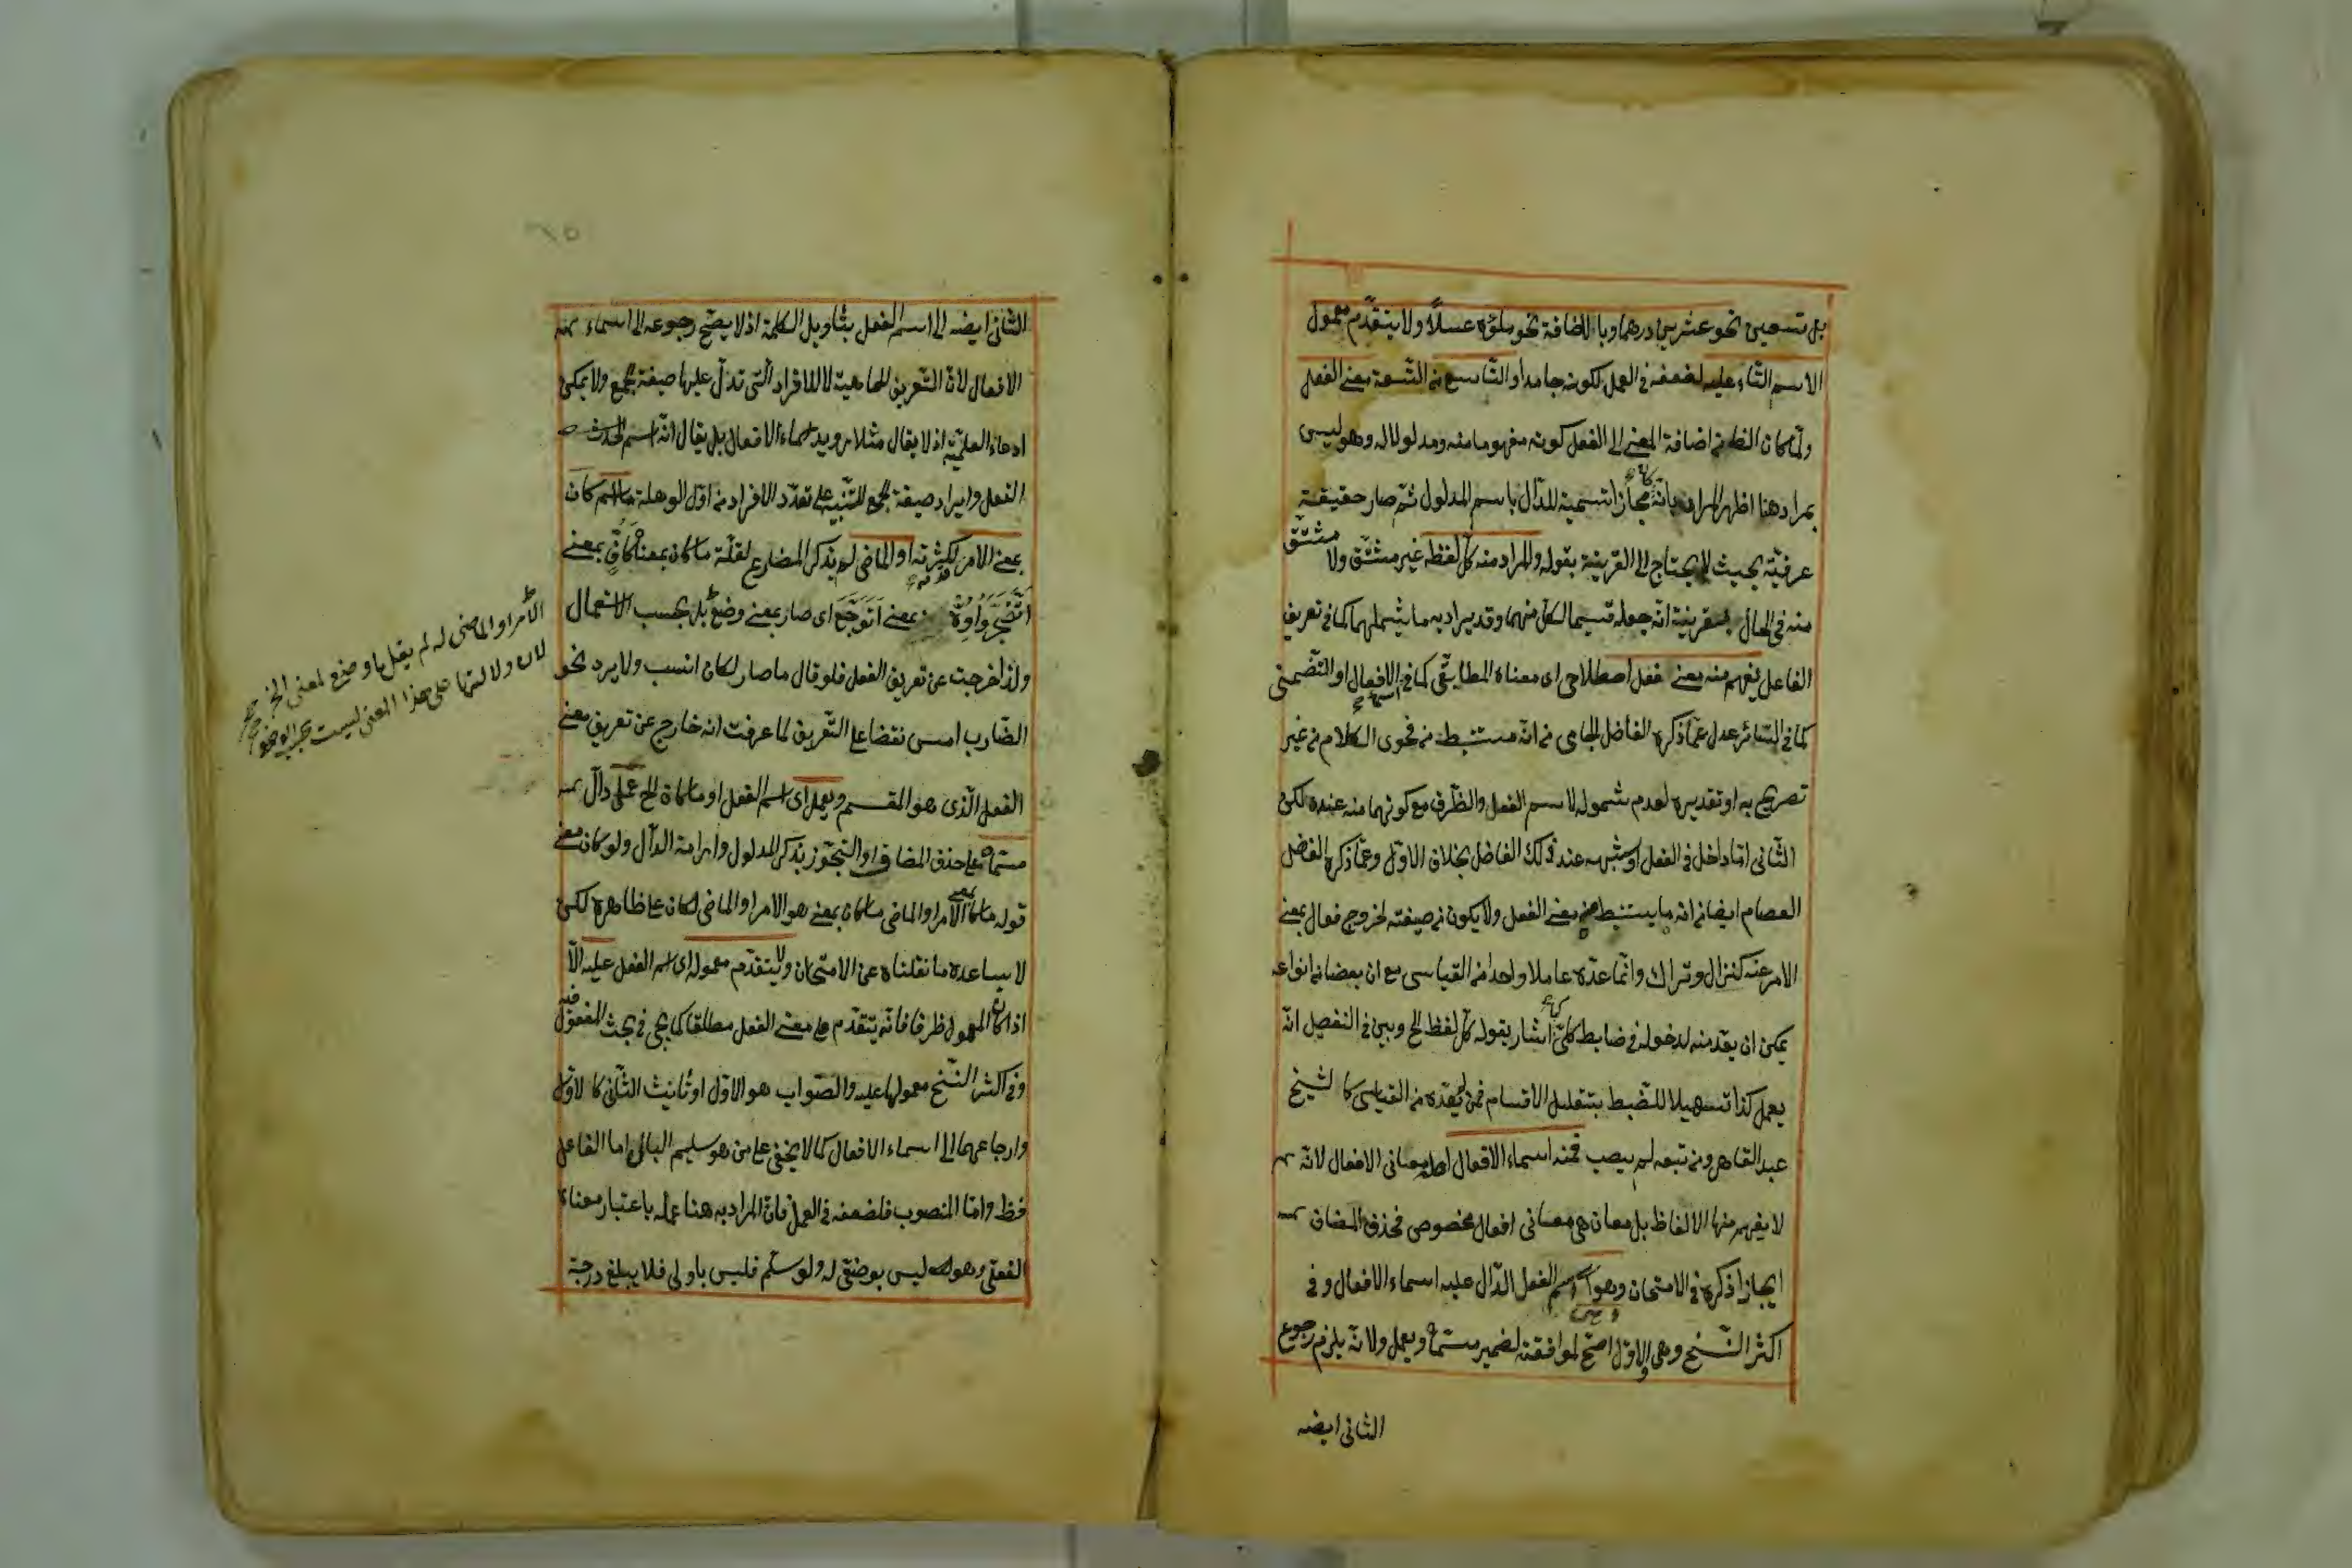 بل تسعين نحو عشرين درهما وبالاضافة نحو ملؤه عسلًا ولا يتقدّم معمول
الاسم التّام عليه لضعفه في العمل لكونه جامدا والتّاسع من التّسعة معنى الفعل
ولمّا كان الظاهر من اضافة المعنى الى الفعل كونه مفهوما منه ومدلولا له وهو ليس
بمراد هنا اظهر المراد بانّه مجاز تسمية للدّال باسم المدلول ثمّ صار حقيقة
عرفيّة بحيث لا يحتاج الى القرينة بقوله والمراد منه كلّ لفظ غير مشتّق ولا مشتّق
منه في الحال بقرينة انّه جعله قسيما لكلّ منهما وقد يراد به ما يشملهما كما في تعريف
الفاعل يفهم منه معنى فعل اصطلاحى اى معناه المطابقى كما في اسماء الافعال او التّضمنى
كما في السّائر عدل عمّا ذكره الفاضل الجامى من انّه مستنبط من فحوى الكلام من غير
تصريح به او تقديره لعدم شموله لاسم الفعل والظّرف مع كونهما منه عنده لكن
الثّانى امّا داخل في الفعل او شبهه عند ذلك الفاضل بخلاف الاوّل وعمّا ذكره الفاضل
العصام ايضا من انه ما يستنبط منه معنى الفعل ولا يكون من صيغته لخروج فعال بمعنى
الامر عنه كنزال وتراك وانّما عدّه عاملا واحدا من القياسى مع ان بعضا من انواعه
يمكن ان يعدّ منه لدخوله في ضابط كلّى كما اشار بقوله كلّ لفظ الخ وبين في التفصيل انّه
يعمل كذا تسهيلا للضّبط بتقليل الاقسام فمن لم يعدّه من القياسى كالشيخ
عبد القاهر ومن تبعه لم يصب فمنه اسماء الافعال اصله معانى الافعال لانّه
لا يفهم منها الالفاظ بل معان هى معانى افعال مخصوص فحذف المضاف
ايجازا ذكره في الامتحان وهو اى اسم الفعل الدّال عليه اسماء الافعال وفى
اكثر النّسخ وهى والاوّل اصحّ لموافقته لضمير مسمّاه ويعمل ولانّه يلزم رجوع
الثانى ايضه
الثّانى ايضه الى اسم الفعل بتأويل الكلمة اذ لا يصحّ رجوعه الى اسماء
الافعال لانّ التّعريف للماهيّة لا للافراد الّتى تدلّ عليها صيغة الجمع ولا يمكن
ادعاء العلميّة اذ لا يقال مثلا رويد اسماء الافعال بل يقال انّه اسم لحدث
الفعل وايراد صيغة الجمع للتّنبيه على تعدّد الافراد من اوّل الوهلة ما اسم كان
بمعنى الامر لكثرته او الماضى لم يذكر المضارع لقلّة ما كان بمعناه كافّ بمعنى
اتضجّر واوّه بمعنى اتوجّع اى صار بمعنى وضعى بل بحسب الاستعمال
ولذا خرجت عن تعريف الفعل فلو قال ما صار لكان انسب ولا يرد نحو
الضّارب امس نقضا على التّعريف لما عرفت انه خارج عن تعريف معنى
الفعل الّذى هو المقسم ويعمل اى اسم الفعل او ما كان الخ عمل دالّ
مسمّاه على حذف المضاف او التّجوّز بذكر المدلول وارادة الدّال ولو كان معنى
قوله ما كان بمعنى الامر او الماضى ما كان بمعنى هو الامر او الماضى لكان على ظاهره لكن
لا يساعده ما نقلناه عن الامتحان ولا يتقدّم معموله اى اسم الفعل عليه الّا
اذا كان المعمول ظرفا فانّه يتقدّم على معنى الفعل مطلقا كما يجئ في بحث المفعول فيه
وفى اكثر النّسخ معمولها عليه والصّواب هو الاوّل او تأنيث الثّانى كالاوّل
وارجاعهما الى اسماء الافعال كما لا يخفى على من هو سليم البال اما الفاعل
فظ وامّا المنصوب فلضعفه في العمل فانّ المراد به هنا عمله باعتبار معناه
الفعلى وهو ليس بوضعى له ولو سلّم فليس باولى فلا يبلغ درجة
الامر او الماضى له لم يقل ما وضع لمعنى الخ
لان دلالتها على هذا المعنى ليست بحسب الوضع